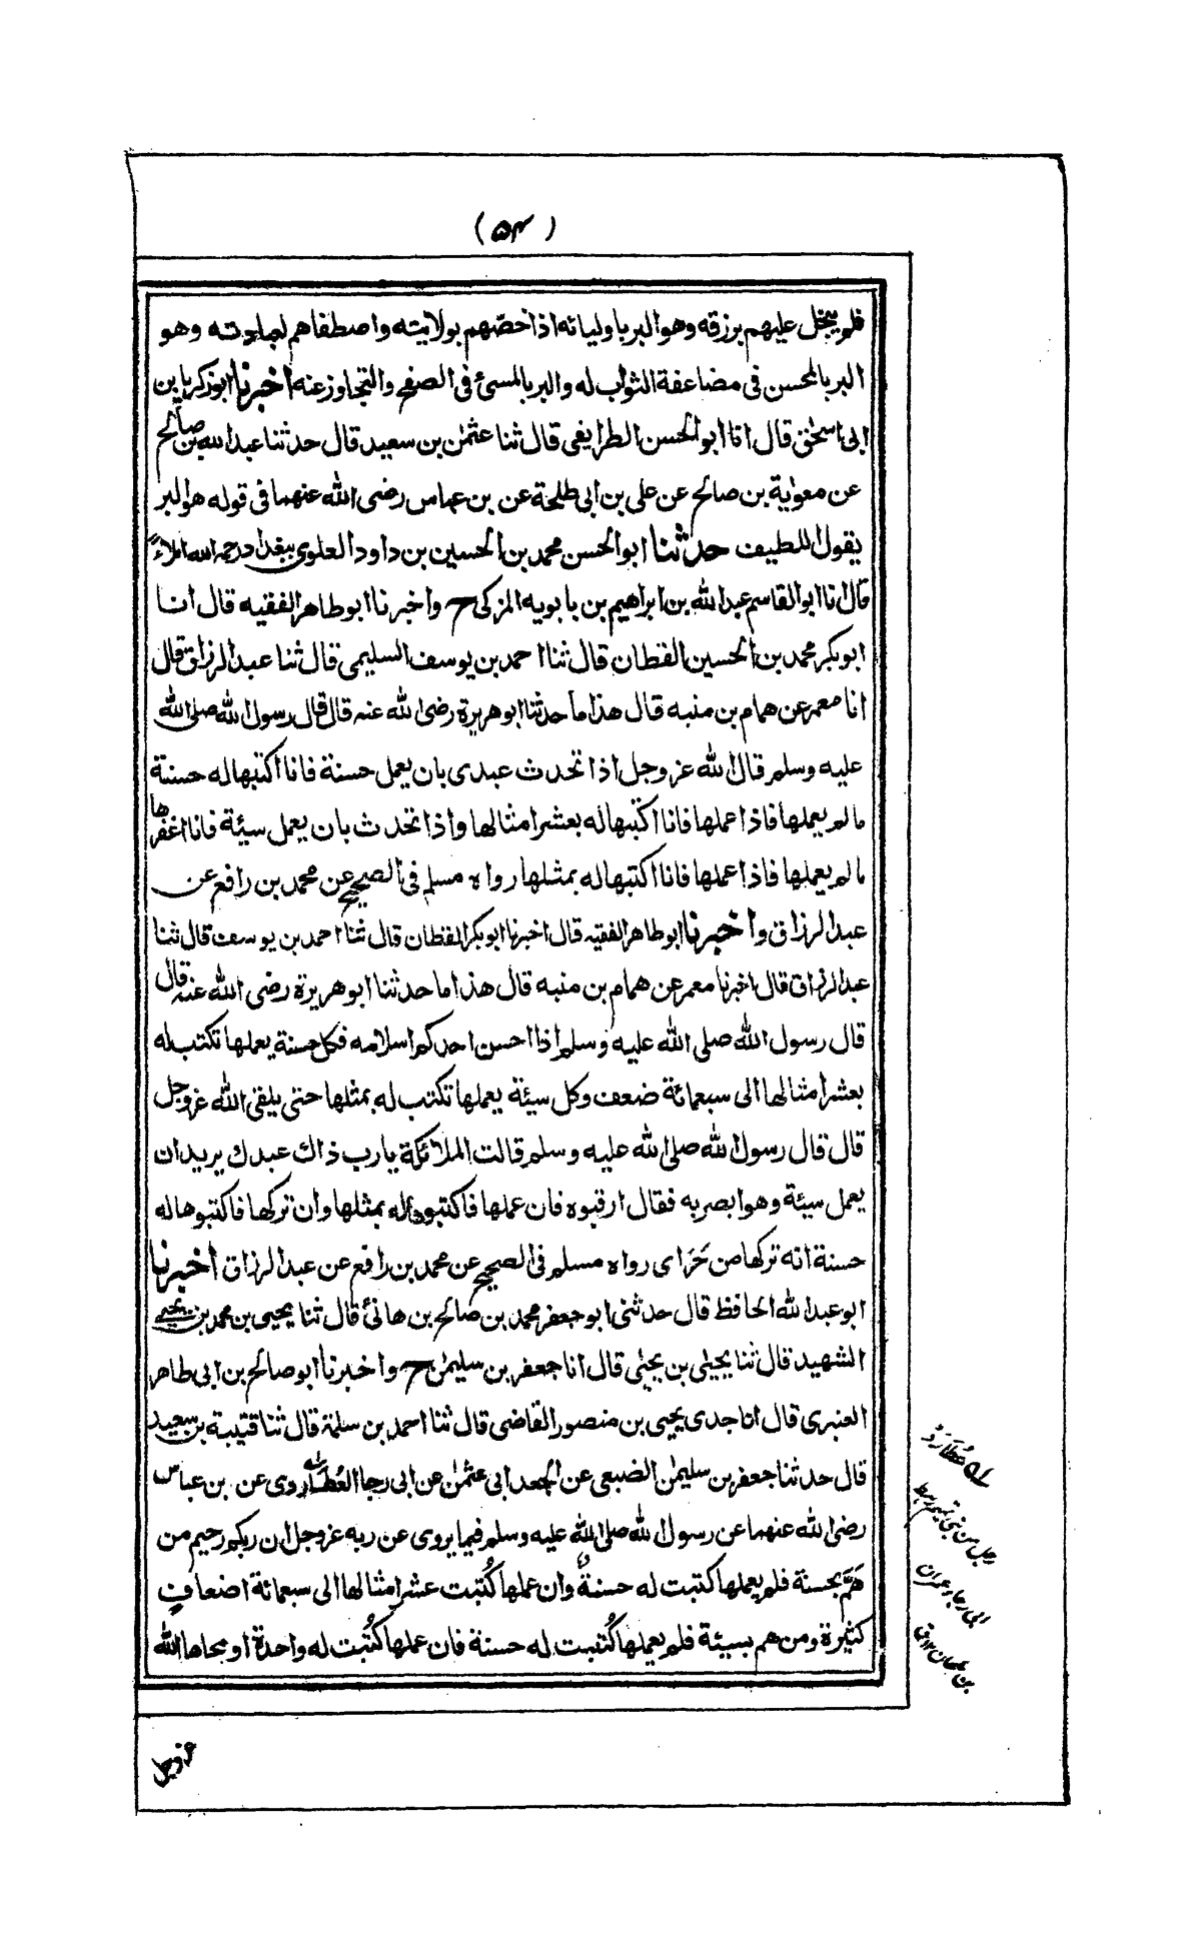 (۵۴)
فلم يبخل عليهم برزقه وهو البر باوليائه اذا خصهم بولايته واصطفاهم لعبادته وهو
البر بالمحسن فى مضاعفة الثواب له والبر بالمسئ فى الصفح والتجاوز عنه اخبرنا ابوزكريا بن
ابى اسحٰق قال انا ابو الحسن الطرايفى قال ثنا عثمٰن بن سعيد قال حدثنا عبد الله بن صالح
عن معوٰية بن صالح عن على بن ابى طلحة عن بن عباس رضى الله عنهما فى قوله هو البر
يقول اللطيف حدثنا ابو الحسن محمد بن الحسين بن داود العلوى ببغداد رحمه الله املاءً
قال انا ابو القاسم عبد الله بن ابراهيم بن بابويه المزكى ح واخبرنا ابو طاهر الفقيه قال انا
ابوبكر محمد بن الحسين القطان قال ثنا احمد بن يوسف السليمى قال ثنا عبد الرزاق قال
انا معمر عن همام بن منبه قال هذا ما حدثنا ابو هريرة رضى الله عنه قال قال رسول الله صلى الله
عليه وسلم قال الله عز وجل اذا تحدث عبدى بان يعمل حسنة فانا اكتبها له حسنة
ما لم يعملها فاذا عملها فانا اكتبها له بعشر امثالها واذا تحدث بان يعمل سيئة فانا اغفرها
ما لم يعملها فاذا عملها فانا اكتبها له بمثلها رواه مسلم فى الصحيح عن محمد بن رافع عن
عبد الرزاق واخبرنا ابو طاهر الفقيه قال اخبرنا ابوبكر القطان قال ثنا احمد بن يوسف قال ثنا
عبد الرزاق قال اخبرنا معمر عن همام بن منبه قال هذا ما حدثنا ابو هريرة رضى الله عنه قال
قال رسول الله صلى الله عليه وسلم اذا احسن احدكم اسلامه فكل حسنة يعملها تكتب له
بعشر امثالها الى سبعمائة ضعف وكل سيئة يعملها تكتب له بمثلها حتى يلقى الله عز وجل
قال قال رسول الله صلى الله عليه وسلم قالت الملائكة يارب ذاك عبدك يريد ان
يعمل سيئة وهو ابصر به فقال ارقبوه فان عملها فاكتبوها له بمثلها وان تركها فاكتبوها له
حسنة انه تركها من جَرَاى رواه مسلم فى الصحيح عن محمد بن رافع عن عبد الرزاق اخبرنا
ابو عبد الله الحافظ قال حدثنى ابو جعفر محمد بن صالح بن هانئ قال ثنا يحيى بن محمد بن يحيى
الشهيد قال ثنا يحيٰى بن يحيٰى قال انا جعفر بن سليمٰن ح واخبرنا ابو صالح بن ابى طاهر
العنبرى قال انا جدى يحيى بن منصور القاضى قال ثنا احمد بن سلمة قال ثنا قتيبة بن سعيد
قال حدثنا جعفر بن سليمٰن الضبعى عن الجعد ابى عثمٰن عن ابى رجا العُطَاردى عن بن عباس
رضى الله عنهما عن رسول الله صلى الله عليه وسلم فيما يروى عن ربه عز وجل ان ربكم رحيم من
هَمَّ بحسنة فلم يعملها كتبت له حسنةٌ وان عملها كُتبت عشر امثالها الى سبعمائة اضعافٍ
كثيرة ومن هم بسيئة فلم يعملها كُتبت له حسنة فان عملها كُتبت له واحدة او محاها الله
عُطَارَدُ
رجل من بنى تميم رهط
ابى رجاء عمران
بن ملحان
عز وجل